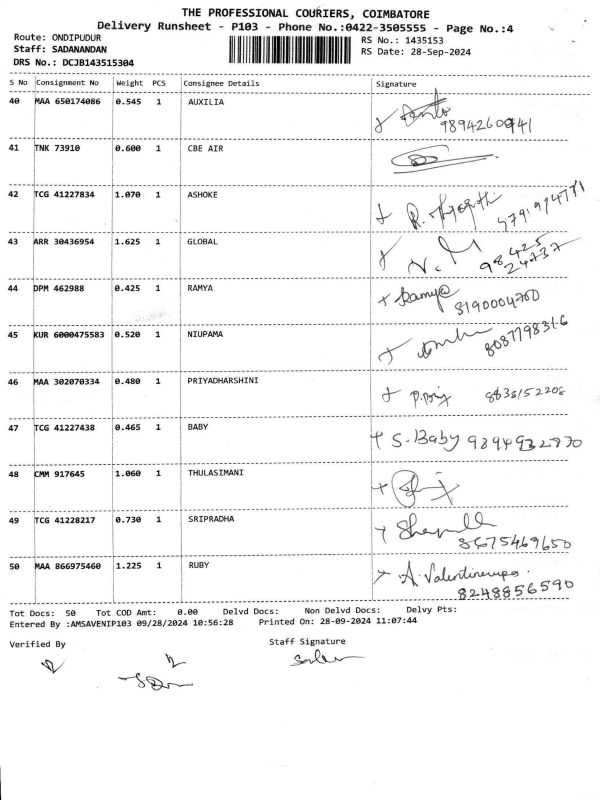 THE PROFESSIONAL COURIERS, COIMBATORE
Delivery Runsheet - P103 - Phone No.:0422-3505555 - Page No.:4
Route: ONDIPUDUR RS No.: 1435153
Staff: SADANANDAN RS Date: 28-Sep-2024
DRS No.: DCJB143515304
S No Consignment No Weight PCS Consignee Details Signature
40 MAA 650174086 0.545 1 AUXILIA
41 TNK 73910 0.600 1 CBE AIR
42 TCG 41227834 1.070 1 ASHOKE
43 ARR 30436954 1.625 1 GLOBAL
98425
24737
44 DPM 462988 0.425 1 RAMYA Ramya
8190004700
45 KUR 6000475583 0.520 1 NIUPAMA
8087798316
46 MAA 302070334 0.480 1 PRIYADHARSHINI 8838152208
47 TCG 41227438 0.465 1 BABY S. Baby 9894932870
48 CMM 917645 1.060 1 THULASIMANI
49 TCG 41228217 0.730 1 SRIPRADHA
8675469650
50 MAA 866975460 1.225 1 RUBY
8248856590
Tot Docs: 50 Tot COD Amt: 0.00 Delvd Docs: Non Delvd Docs: Delvy Pts:
Entered By :AMSAVENIP103 09/28/2024 10:56:28 Printed On: 28-09-2024 11:07:44
Verified By Staff Signature